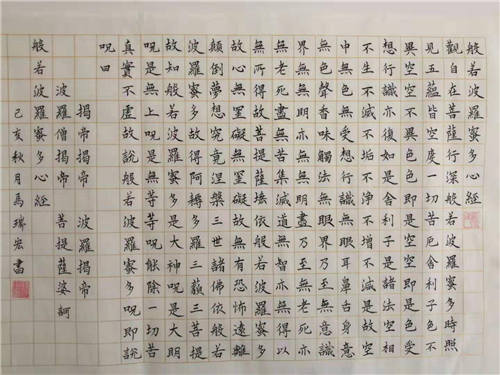 般若波羅蜜多心經
觀自在菩薩行深般若波羅蜜多時照
見五蘊皆空度一切苦厄舍利子色不
異空空不異色色即是空空即是色受
想行識亦復如是舍利子是諸法空相
不生不滅不垢不淨不增不減是故空
中無色無受想行識無眼耳鼻舌身意
無色聲香味觸法無眼界乃至無意識
界無無明亦無無明盡乃至無老死亦
無老死盡無苦集滅道無智亦無得以
無所得故菩提薩埵依般若波羅蜜多
故心無罣礙無罣礙故無有恐怖遠離
顛倒夢想究竟涅槃三世諸佛依般若
波羅蜜多故得阿耨多羅三藐三菩提
故知般若波羅蜜多是大神呪是大明
呪是無上呪是無等等呪能除一切苦
真實不虛故說般若波羅蜜多呪即說
呪曰
揭帝揭帝 波羅揭帝
波羅僧揭帝 菩提薩婆訶
般若波羅蜜多心經
己亥秋月馬瑞宏書